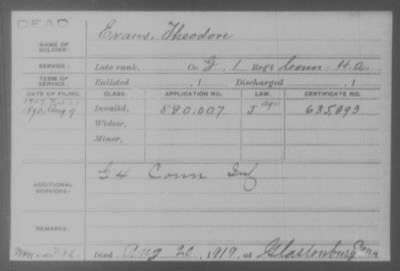 DEAD
NAME OF SOLDIER: Evans, Theodore
SERVICE: Late rank, Co. G, 1 Reg't Conn. H.A.
TERM OF SERVICE: Enlisted , 1 Discharged , 1
DATE OF FILING. CLASS. APPLICATION NO. LAW. CERTIFICATE NO.
1890, Aug 9 Invalid, 880.007 J 635,893
Widow,
Minor,
ADDITIONAL SERVICES: Conn Inf
REMARKS:
Died Aug 20, 1919, at Glastonbury Conn